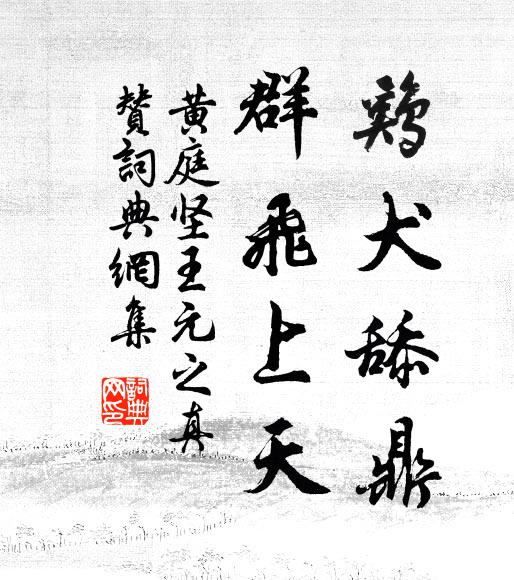 鷄犬舔鼎
群飛上天
黄庭坚王元之真
赞詞典網集
詞典網印